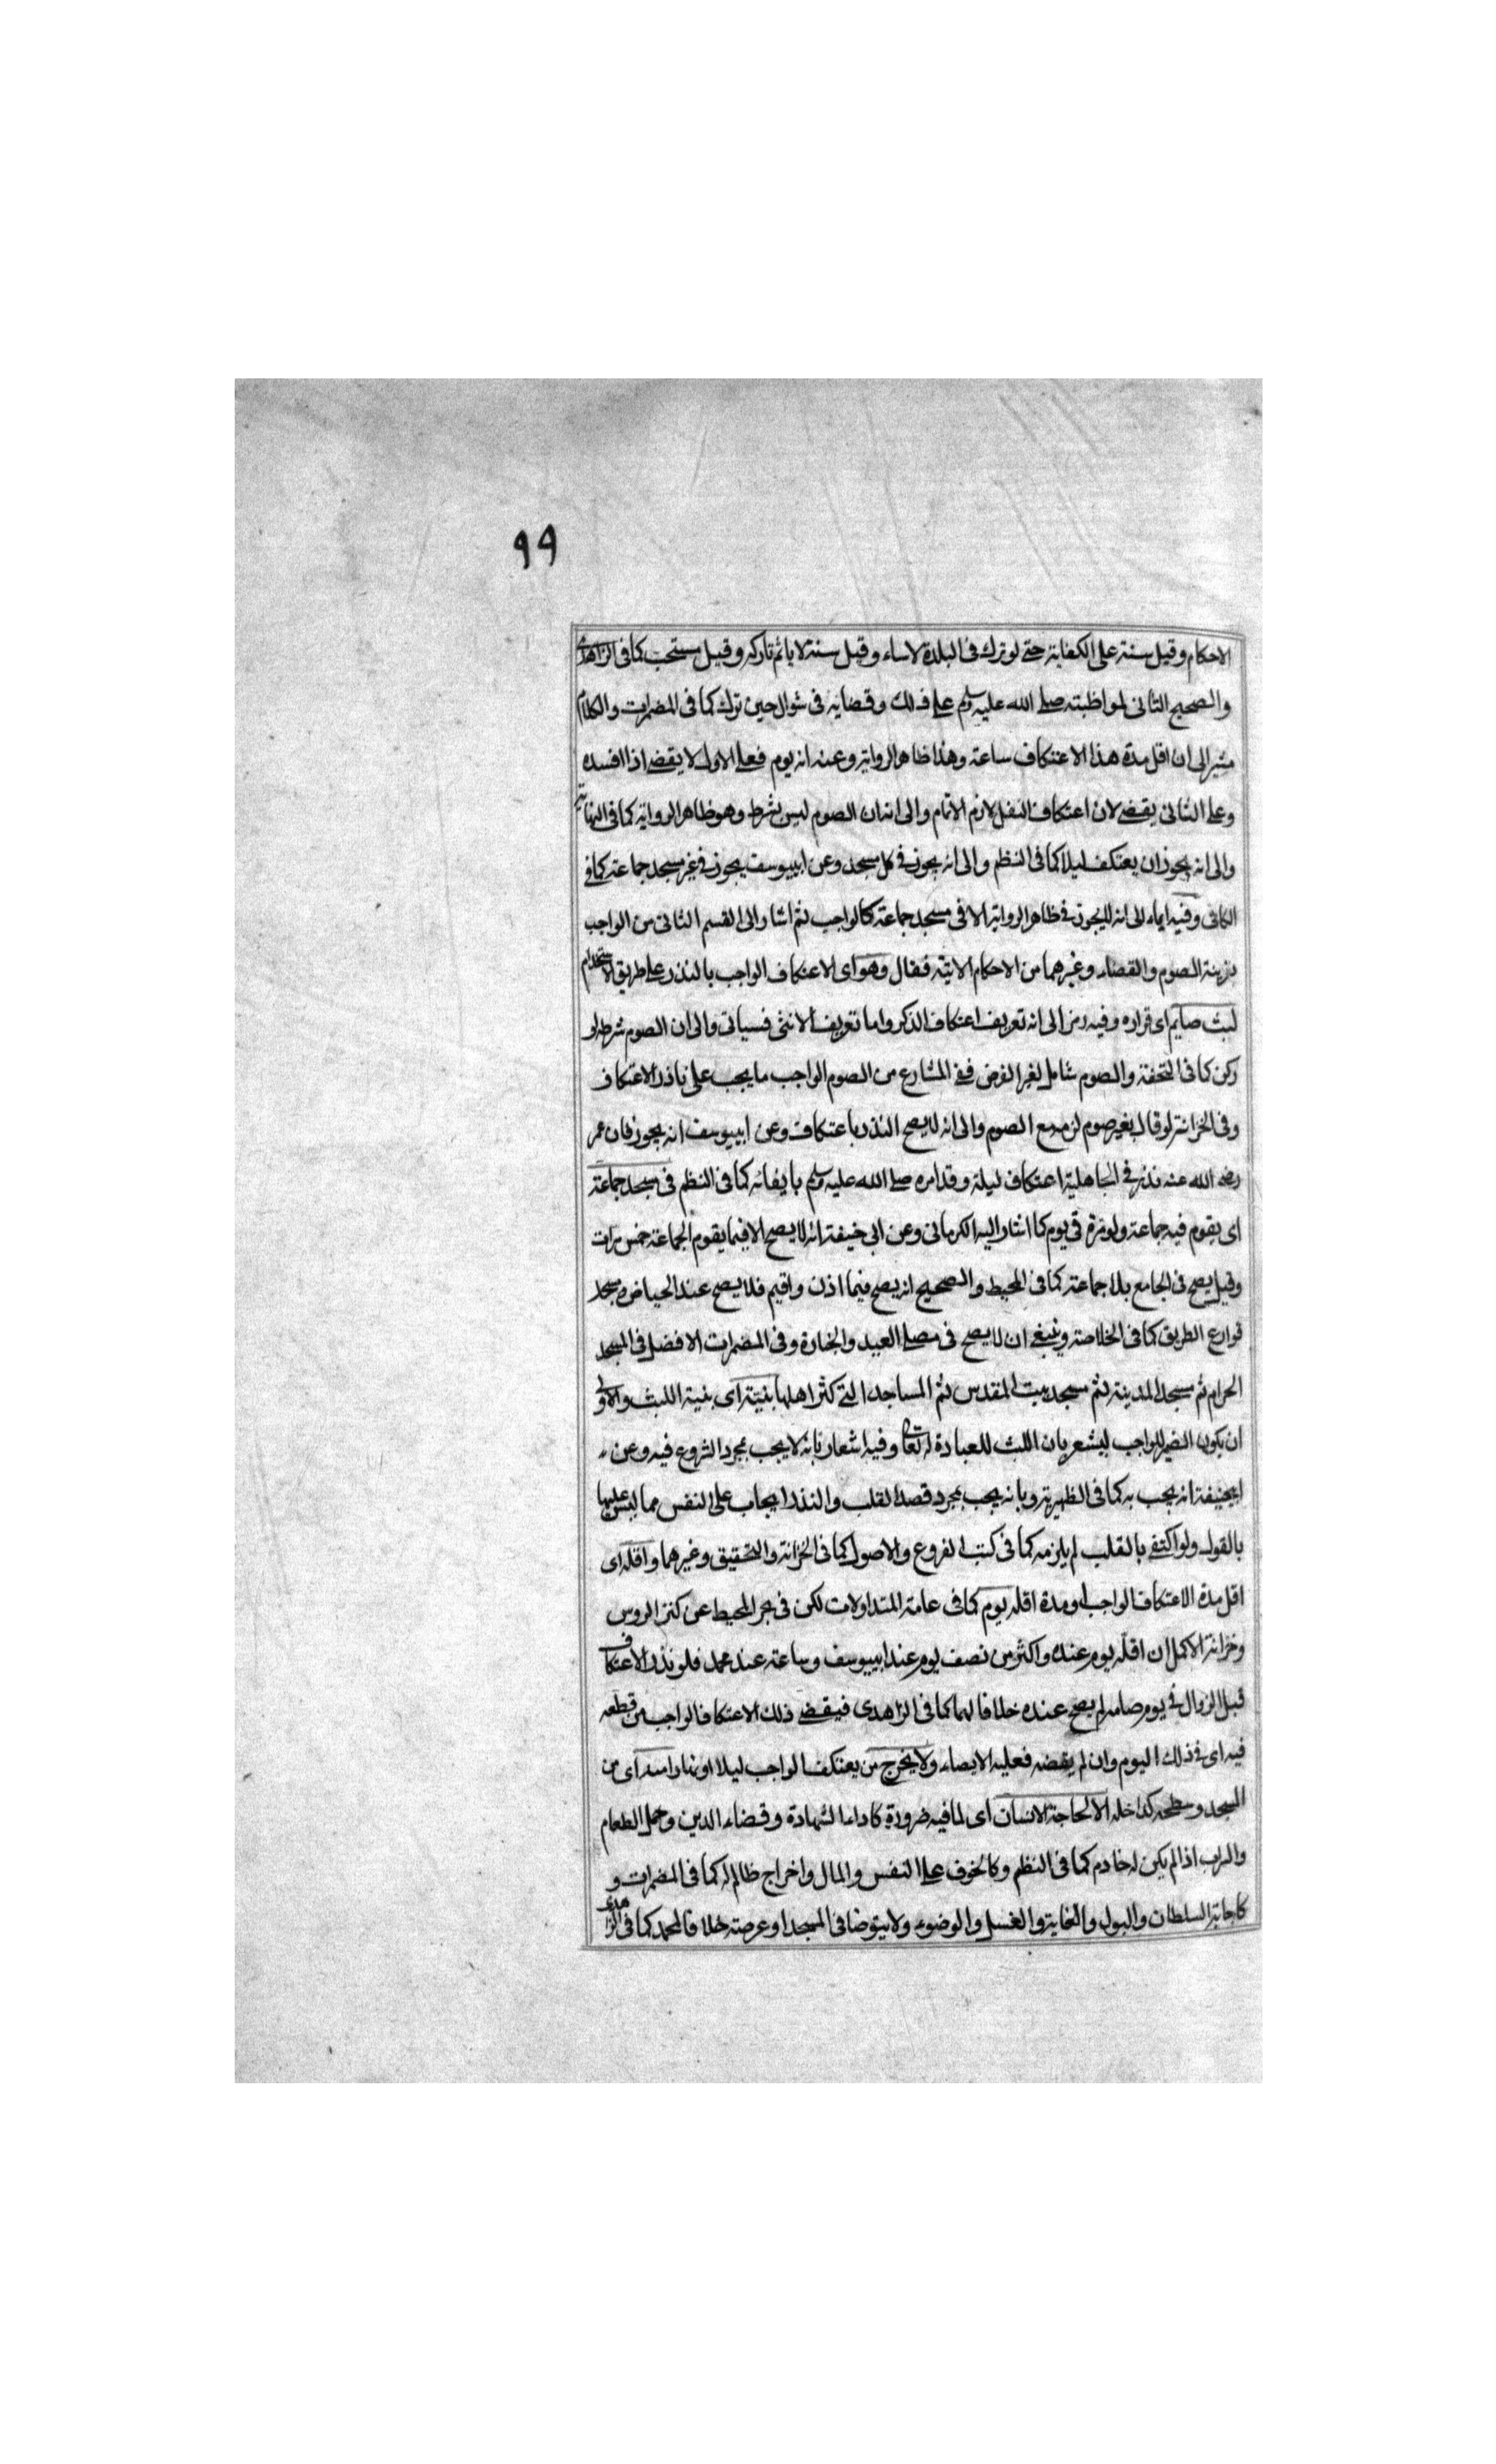 ٩٩
الاحكام وقيل سنة على الكفاية حتى لو ترك فى البلدة لاساء وقيل سنة لا ياثم تاركه وقيل مستحب كما فى الزاهدى
والصحيح الثانى لمواظبته صلى الله عليه وسلم على ذلك وقضايه فى شوال حين ترك كما فى المضمرات والكلام
مشير الى ان اقل مدة هذا الاعتكاف ساعة وهذا ظاهر الرواية وعنه انه يوم فعلى الاول لا يقضى اذا افسده
وعلى الثانى يقضى لان اعتكاف النفل لازم الاتمام والى ان الصوم ليس بشرط وهو ظاهر الرواية كما فى النهاية
والى انه يجوز ان يعتكف ليلا كما فى النظم والى انه يجوز فى كل مسجد وعن ابييوسف يجوز فى غير مسجد جماعة كما فى
الكافى وفيه ايماء الى انه لا يجوز فى ظاهر الرواية الا فى مسجد جماعة كالواجب ثم اشار الى القسم الثانى من الواجب
بزينة الصوم والقضاء وغيرهما من الاحكام الاتية فقال وهو اى الاعتكاف الواجب بالنذر على طريق الاستخدام
لبث صايم اى قراره وفيه رمز الى انه تعريف اعتكاف الذكر واما تعريف الانثى فسياتى والى ان الصوم شرطه او
ركن كما فى التحفة والصوم شامل لغير الفرض ففى المشارع من الصوم الواجب ما يجب على ناذر الاعتكاف
وفى الخزانة لو قال بغير صوم لزمه مع الصوم والى انه لا يصح النذر باعتكاف وعن ابييوسف انه يجوز فان عمر
رضى الله عنه نذر فى الجاهلية اعتكاف ليلة وقد امره صلى الله عليه وسلم بايفائه كما فى النظم فى مسجد جماعة
اى يقوم فيه جماعة ولو مرة فى يوم كما اشار اليه الكرمانى وعن ابى حنيفة انه لا يصح الا فيما يقوم الجماعة خمس مرات
وقيل يصح فى الجامع بلا جماعة كما فى المحيط والصحيح انه يصح فيما اذن واقيم فلا يصح عند الحياض ومسجد
قوارع الطريق كما فى الخلاصة وينبغى ان لا يصح فى مصلى العيد والجنازة وفى المضمرات الافضل فى المسجد
الحرام ثم مسجد المدينة ثم مسجد بيت المقدس ثم المساجد التى كثر اهلها بنيته اى بنية اللبث والاولى
ان يكون الضمير للواجب ليشعر بان اللبث للعبادة له تعالى وفيه اشعار بانه لا يجب بمجرد الشروع فيه وعن
ابيحنيفة انه يجب به كما فى الظهيرية وبانه يجب بمجرد قصد القلب والنذر ايجاب على النفس مما ليس عليها
بالقول ولو اكتفى بالقلب لم يلزمه كما فى كتب الفروع والاصول كما فى الخزانة والتحقيق وغيرهما واقله اى
اقل مدة الاعتكاف الواجب او مدة اقله يوم كما فى عامة المتداولات لكن فى بحر المحيط عن كنز الروس
وخزانة الاكمل ان اقله يوم عنده واكثر من نصف يوم عند ابييوسف وساعة عند محمد فلو نذر الاعتكاف
قبل الزوال فى يوم صامه لم يصح عنده خلافا لهما كما فى الزاهدى فيقضى ذلك الاعتكاف الواجب من قطعه
فيه اى فى ذلك اليوم وان لم يقضه فعليه الايصاء ولا يخرج من يعتكف الواجب ليلا او نهارا منه اى من
المسجد وسطحه كداخله الا لحاجة الانسان اى لما فيه ضرورة كاداء الشهادة وقضاء الدين وحمل الطعام
والشراب اذا لم يكن له خادم كما فى النظم وكالخوف على النفس والمال واخراج ظالم له كما فى المضمرات و
كاجابة السلطان والبول والغايط والغسل والوضوء ولا يتوضا فى المسجد او عرصته خلافا لمحمد كما فى الزاهدى